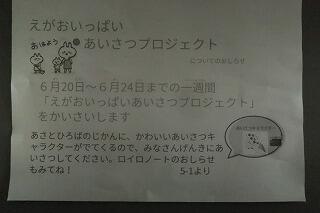 えがおいっぱい
おはよう
あいさつプロジェクト
についてのおしらせ
6月20日～6月24日までの一週間
「えがおいっぱいあいさつプロジェクト」
をかいさいします
あさとひろばのじかんに、かわいいあいさつキ
ャラクターがでてくるので、みなさんげんきにあ
いさつしてください。ロイロノートのおしらせ
もみてね！
5-1より